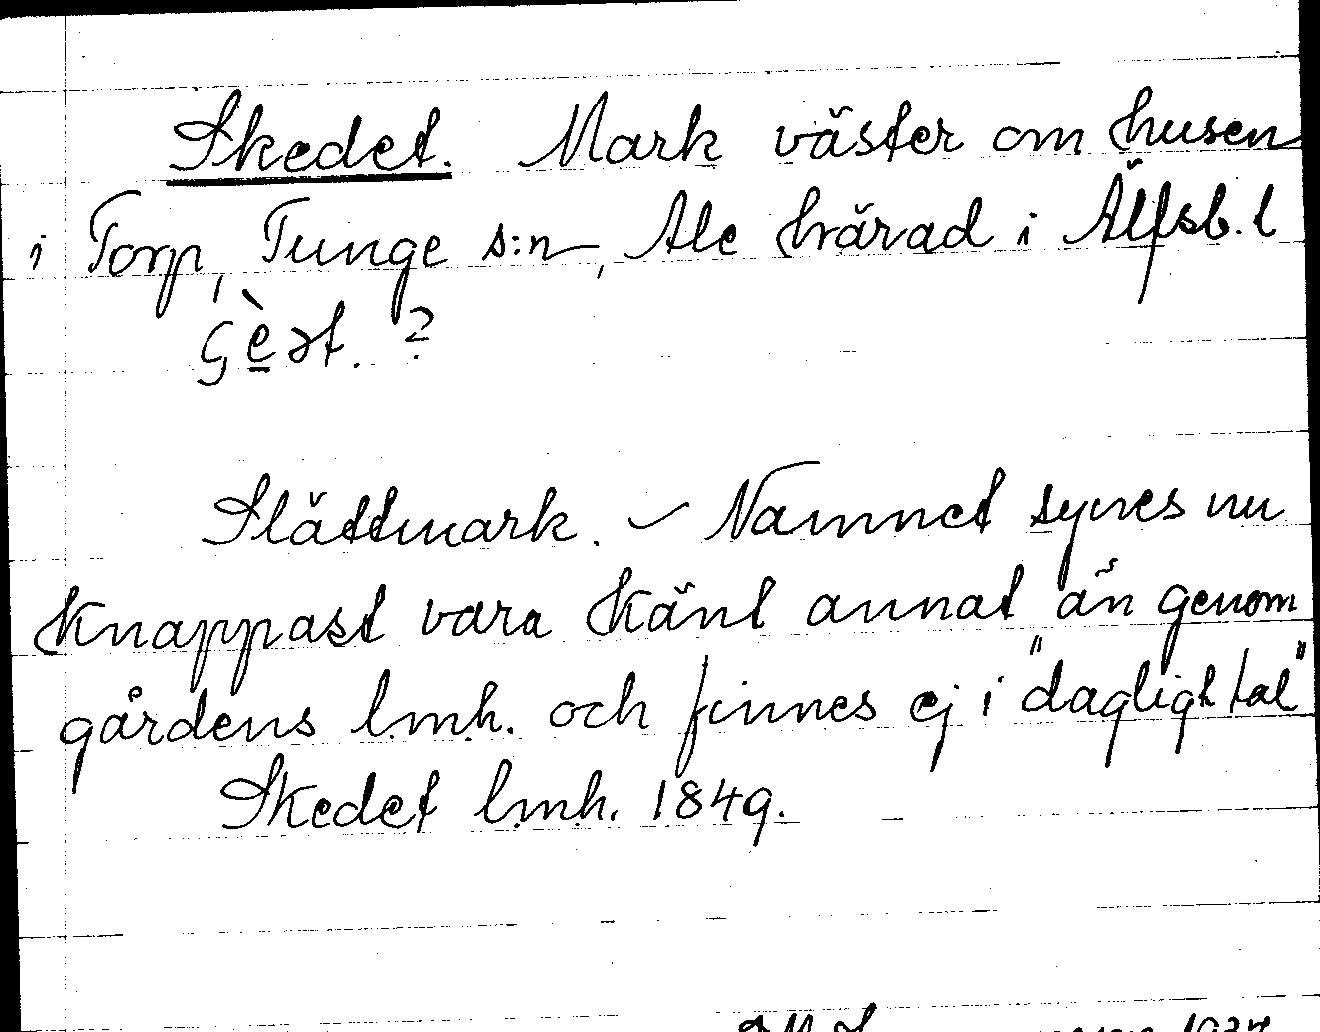 Skedet. Mark väster om husen
i Torp, Tunge s:n, Ale härad i Älfsb. l
Slättmark. – Namnet synes nu
knappast vara känt annat än genom
gårdens l.m.h. och finnes ej i "dagligt tal"
Skedet l.m.h. 1849.